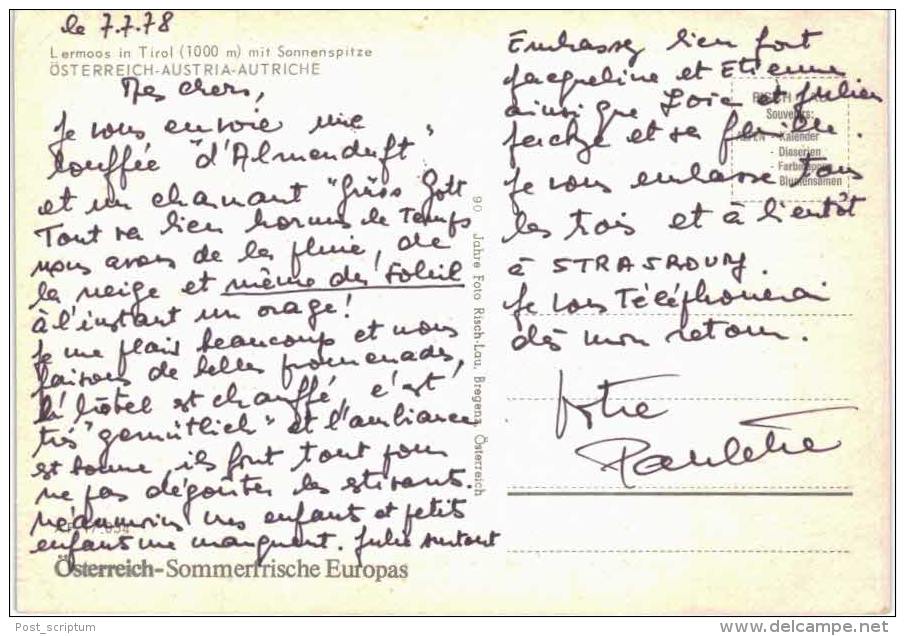 le 7.7.78
Lermoos in Tirol (1000 m) mit Sonnenspitze
ÖSTERREICH-AUSTRIA-AUTRICHE
Mes chers,
Je vous envoie une
bouffée "d'Almenduft"
et un charmant "Grüss Gott
Tout va bien hormis le Temps
nous avons de la pluie, de
la neige et même du soleil
à l'instant un orage!
Je me plais beaucoup et nous
faisons de belles promenades,
l'hôtel est chauffé, c'est
très "gemütlich" et l'ambiance
est bonne, ils font tout pour
ne pas dégoûter les estivants.
Néanmoins mes enfants et petits
enfants me manquent. Julie surtout
Österreich-Sommerfrische Europas
90 Jahre Foto Risch-Lau, Bregenz, Österreich
Embrassez bien fort
Jacqueline et Etienne
ainsi que Loïc et Julien
et sa famille.
Je vous embrasse tous
les trois et à bientôt
à STRASBOURG.
Je vous Téléphonerai
dès mon retour.
Votre
Paulette
Souvenirs:
- Kalender
- Diaserien
- Blumensamen
Post_scriptum
www.delcampe.net